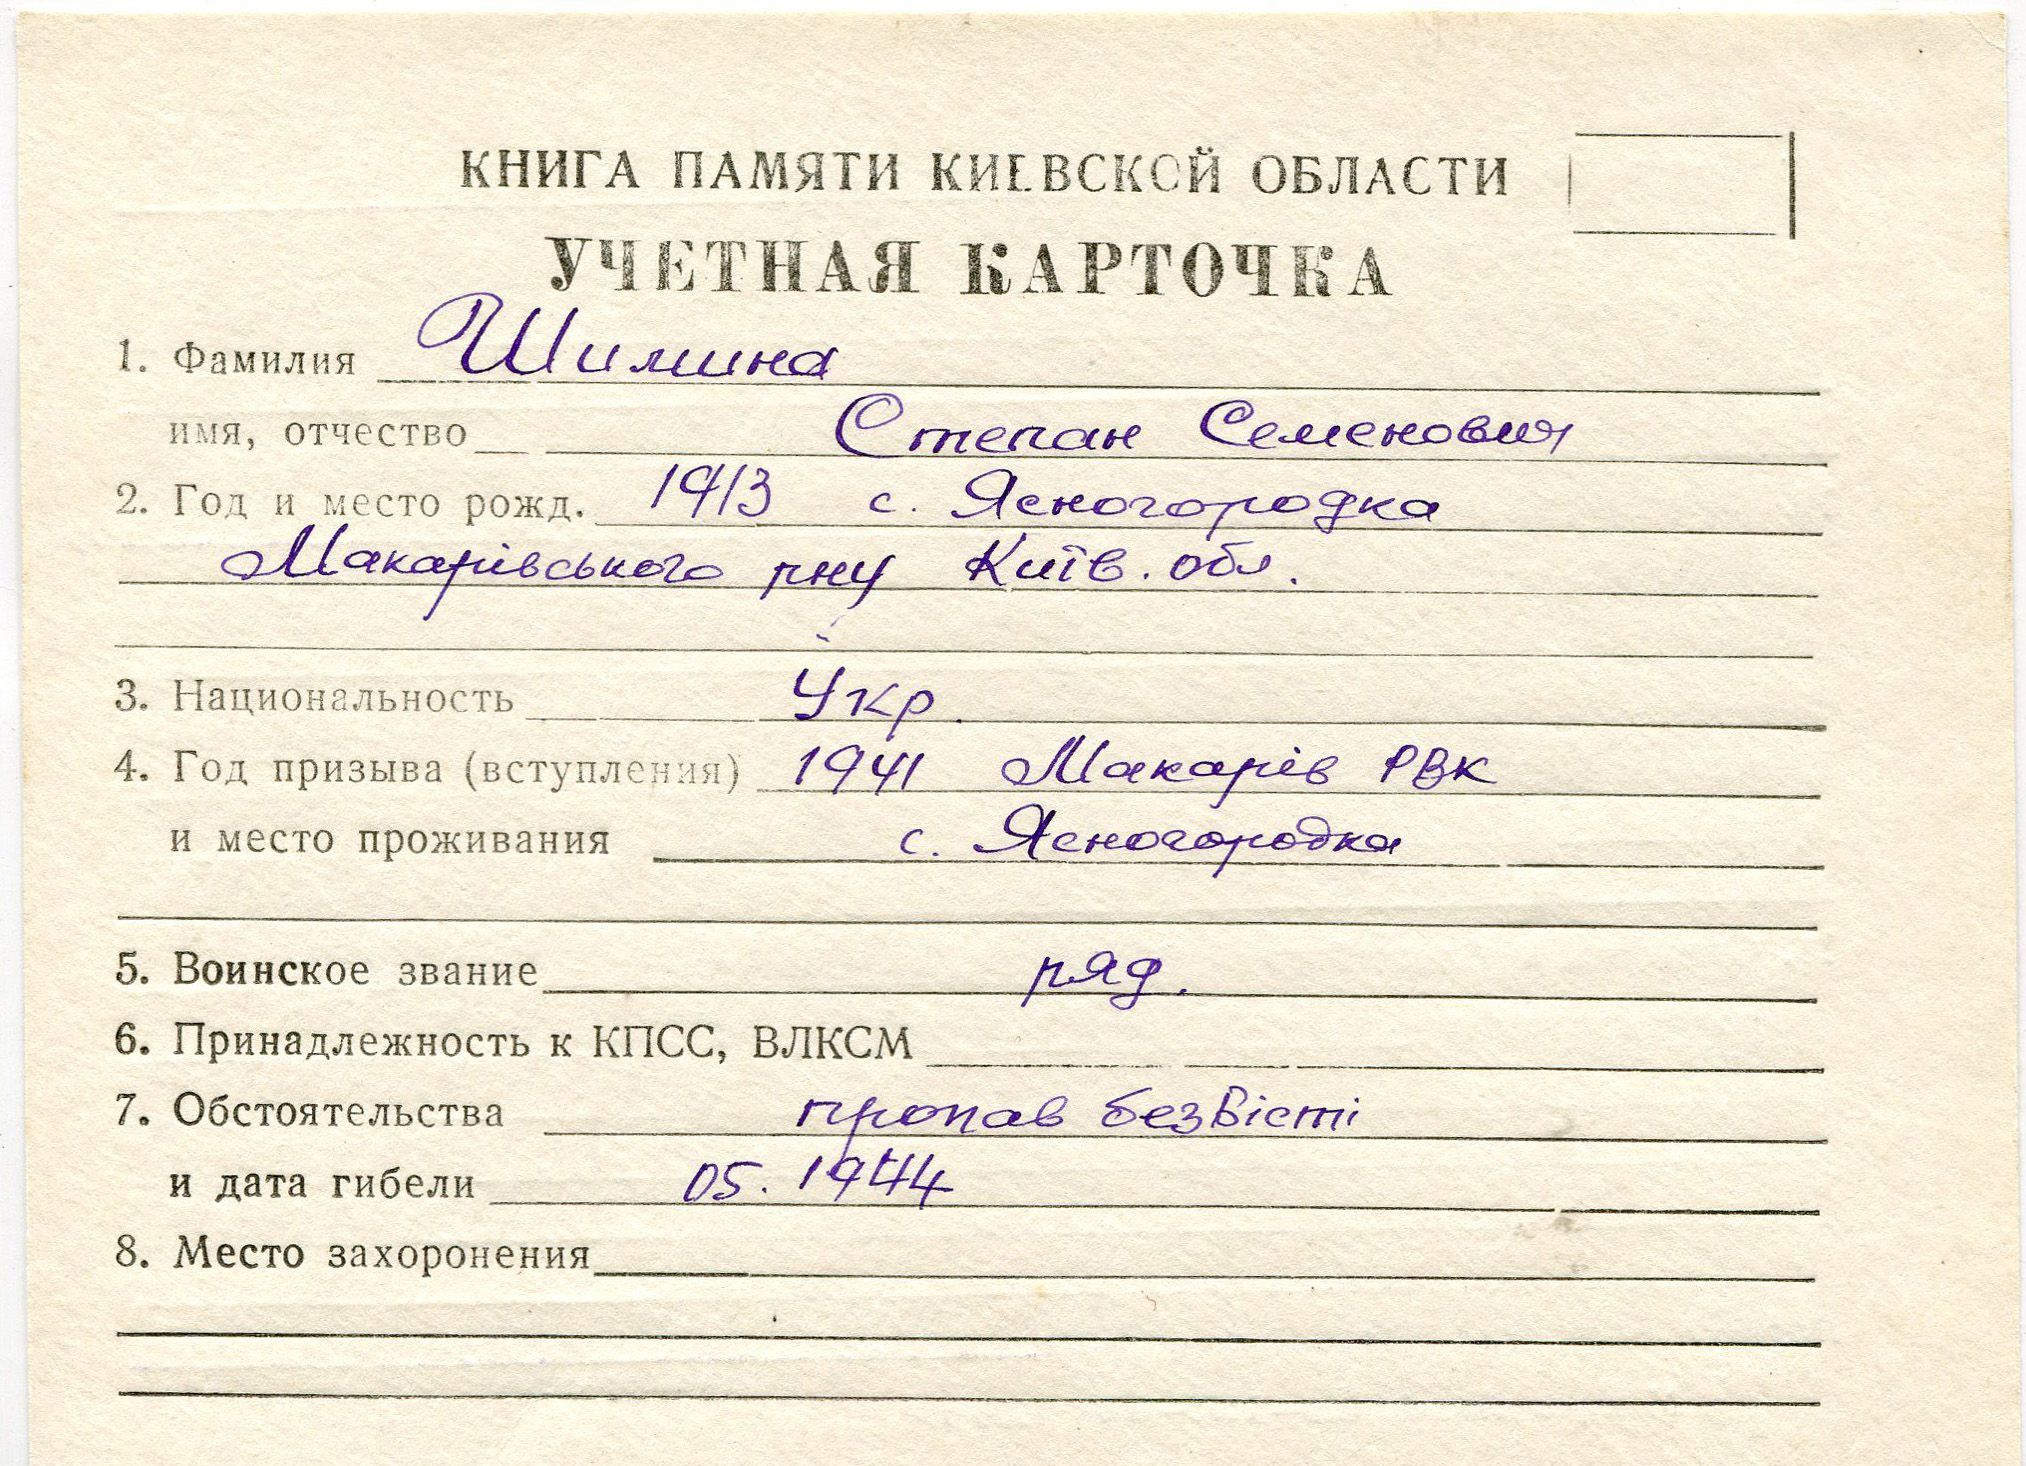 КНИГА ПАМЯТИ КИЕВСКОЙ ОБЛАСТИ
УЧЕТНАЯ КАРТОЧКА
1. Фамилия Шимина
имя, отчество Степан Семенович
2. Год и место рожд. 1913 с. Ясногородка
Макарівського рну Київ. обл.
3. Национальность Укр.
4. Год призыва (вступления) 1941 Макарів РВК
и место проживания с. Ясногородка
5. Воинское звание ряд.
6. Принадлежность к КПСС, ВЛКСМ
7. Обстоятельства пропав безвісті
и дата гибели 05. 1944
8. Место захоронения